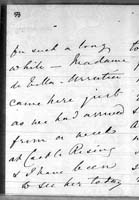 for such a long
while – Madame
de Falla. Urrutia
came here just
as we had arrived
from a weeks
at Castle Rising
& I have been
to see her today